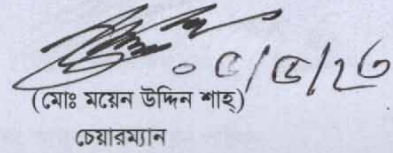 ০৫/৫/২৩
(মোঃ ময়েন উদ্দিন শাহ্)
চেয়ারম্যান